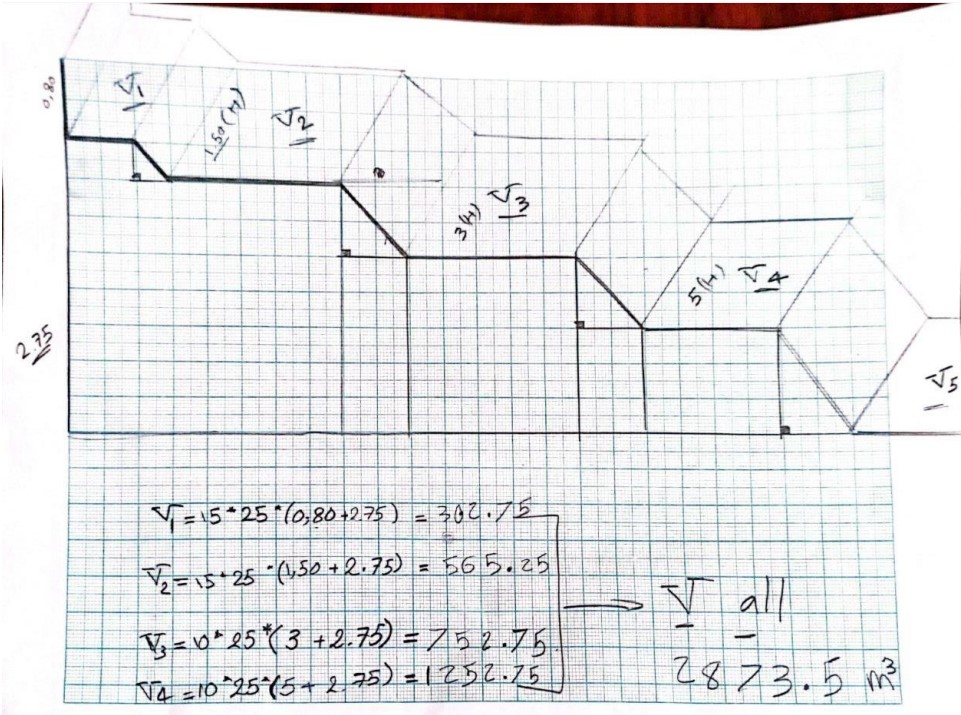 0,80
V1
1.50(H)
V2
a
3(H)
V3
5(H)
V4
2.75
V5
V1 = 15*25*(0,80+2.75) = 302.75
V2 = 15*25*(1,50 + 2.75) = 565.25
V3 = 10*25*(3 + 2.75) = 752.75
V4 = 10*25*(5 + 2.75) = 1252.75
V all
2873.5 m³